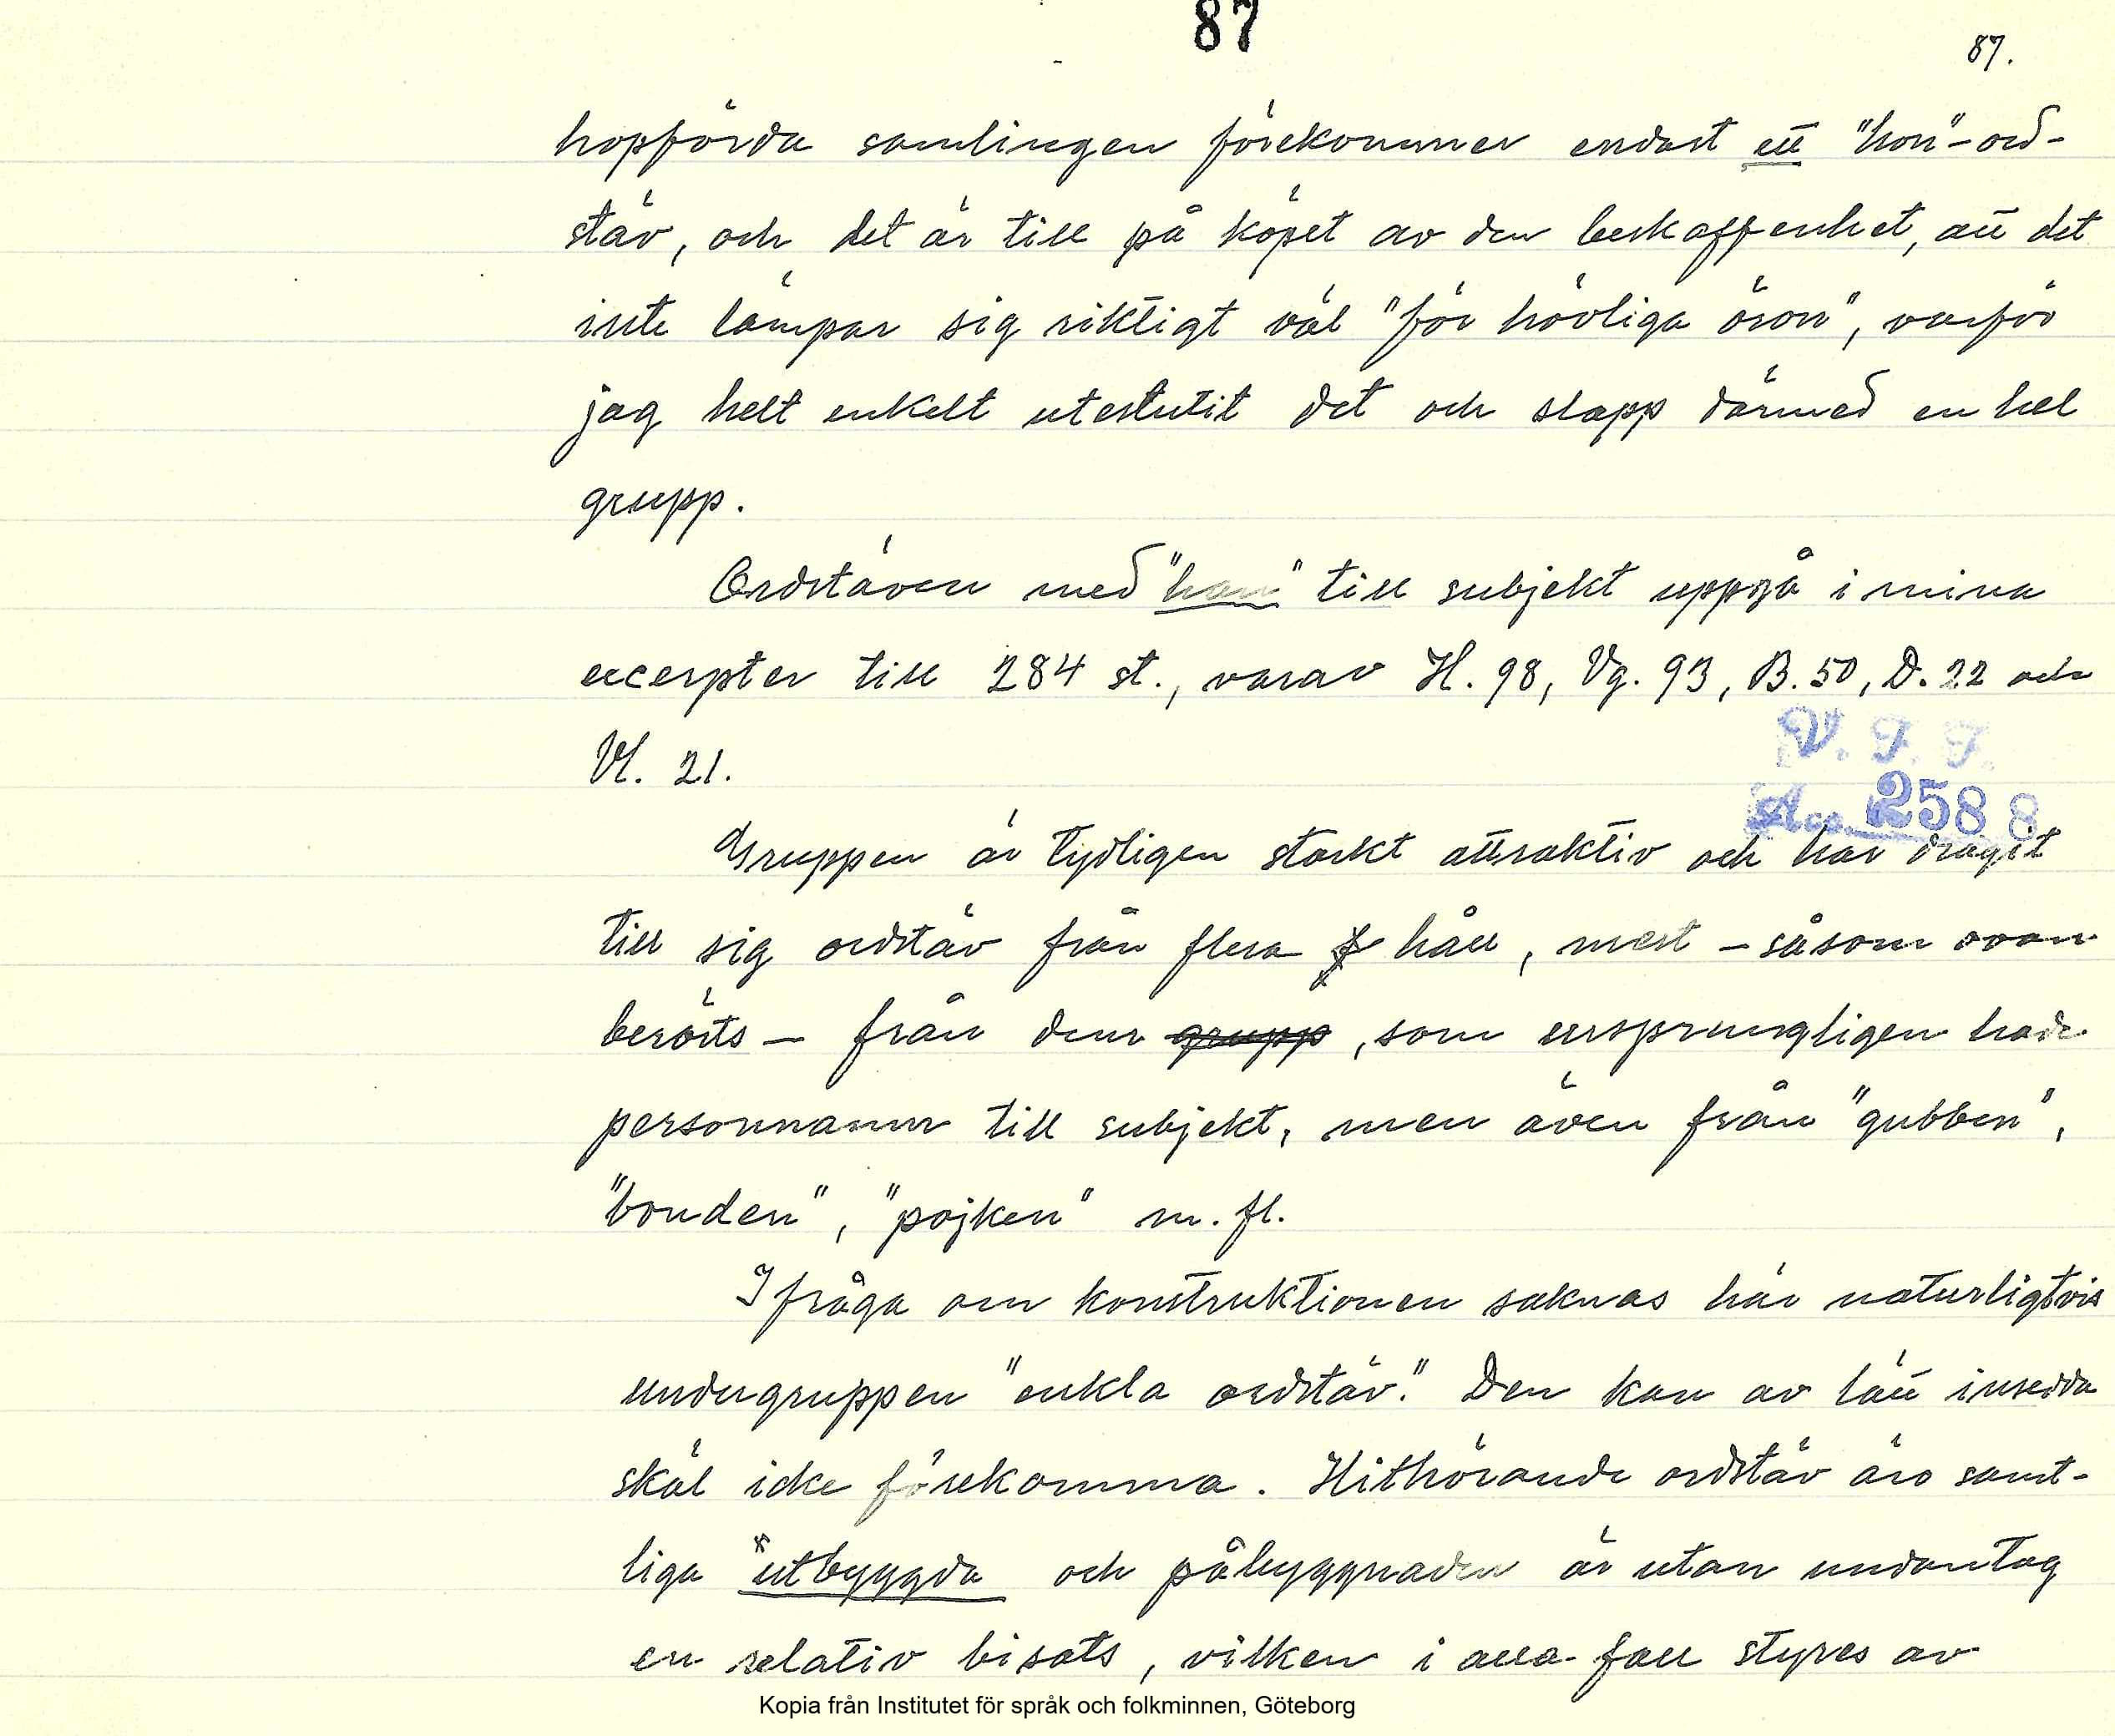 87
87.
hopförda samlingen förekommer endast ett "hon"-ord-
stäv, och det är till på köpet av den beskaffenhet, att det
inte lämpar sig riktigt väl "för hövliga öron", varför
jag helt enkelt uteslutit det och slapp därmed en hel
grupp.
Ordstäven med "han" till subjekt uppgå i mina
excerpter till 284 st., varav H. 98, Vg. 93, B. 50, D. 22 och
Vl. 21.
V. F. F.
Acc. 2588
Gruppen är tydligen starkt attraktiv och har dragit
till sig ordstäv från flera håll, mest – såsom ovan
berörts – från dem grupp, som ursprungligen hade
personnamn till subjekt, men även från "gubben",
"bonden", "pojken" m. fl.
I fråga om konstruktionen saknas här naturligtvis
undergruppen "enkla ordstäv." Den kan av lätt insedda
skäl icke förekomma. Hithörande ordstäv äro samt-
liga utbyggda och påbyggnaden är utan undantag
en relativ bisats, vilken i alla fall styres av
Kopia från Institutet för språk och folkminnen, Göteborg